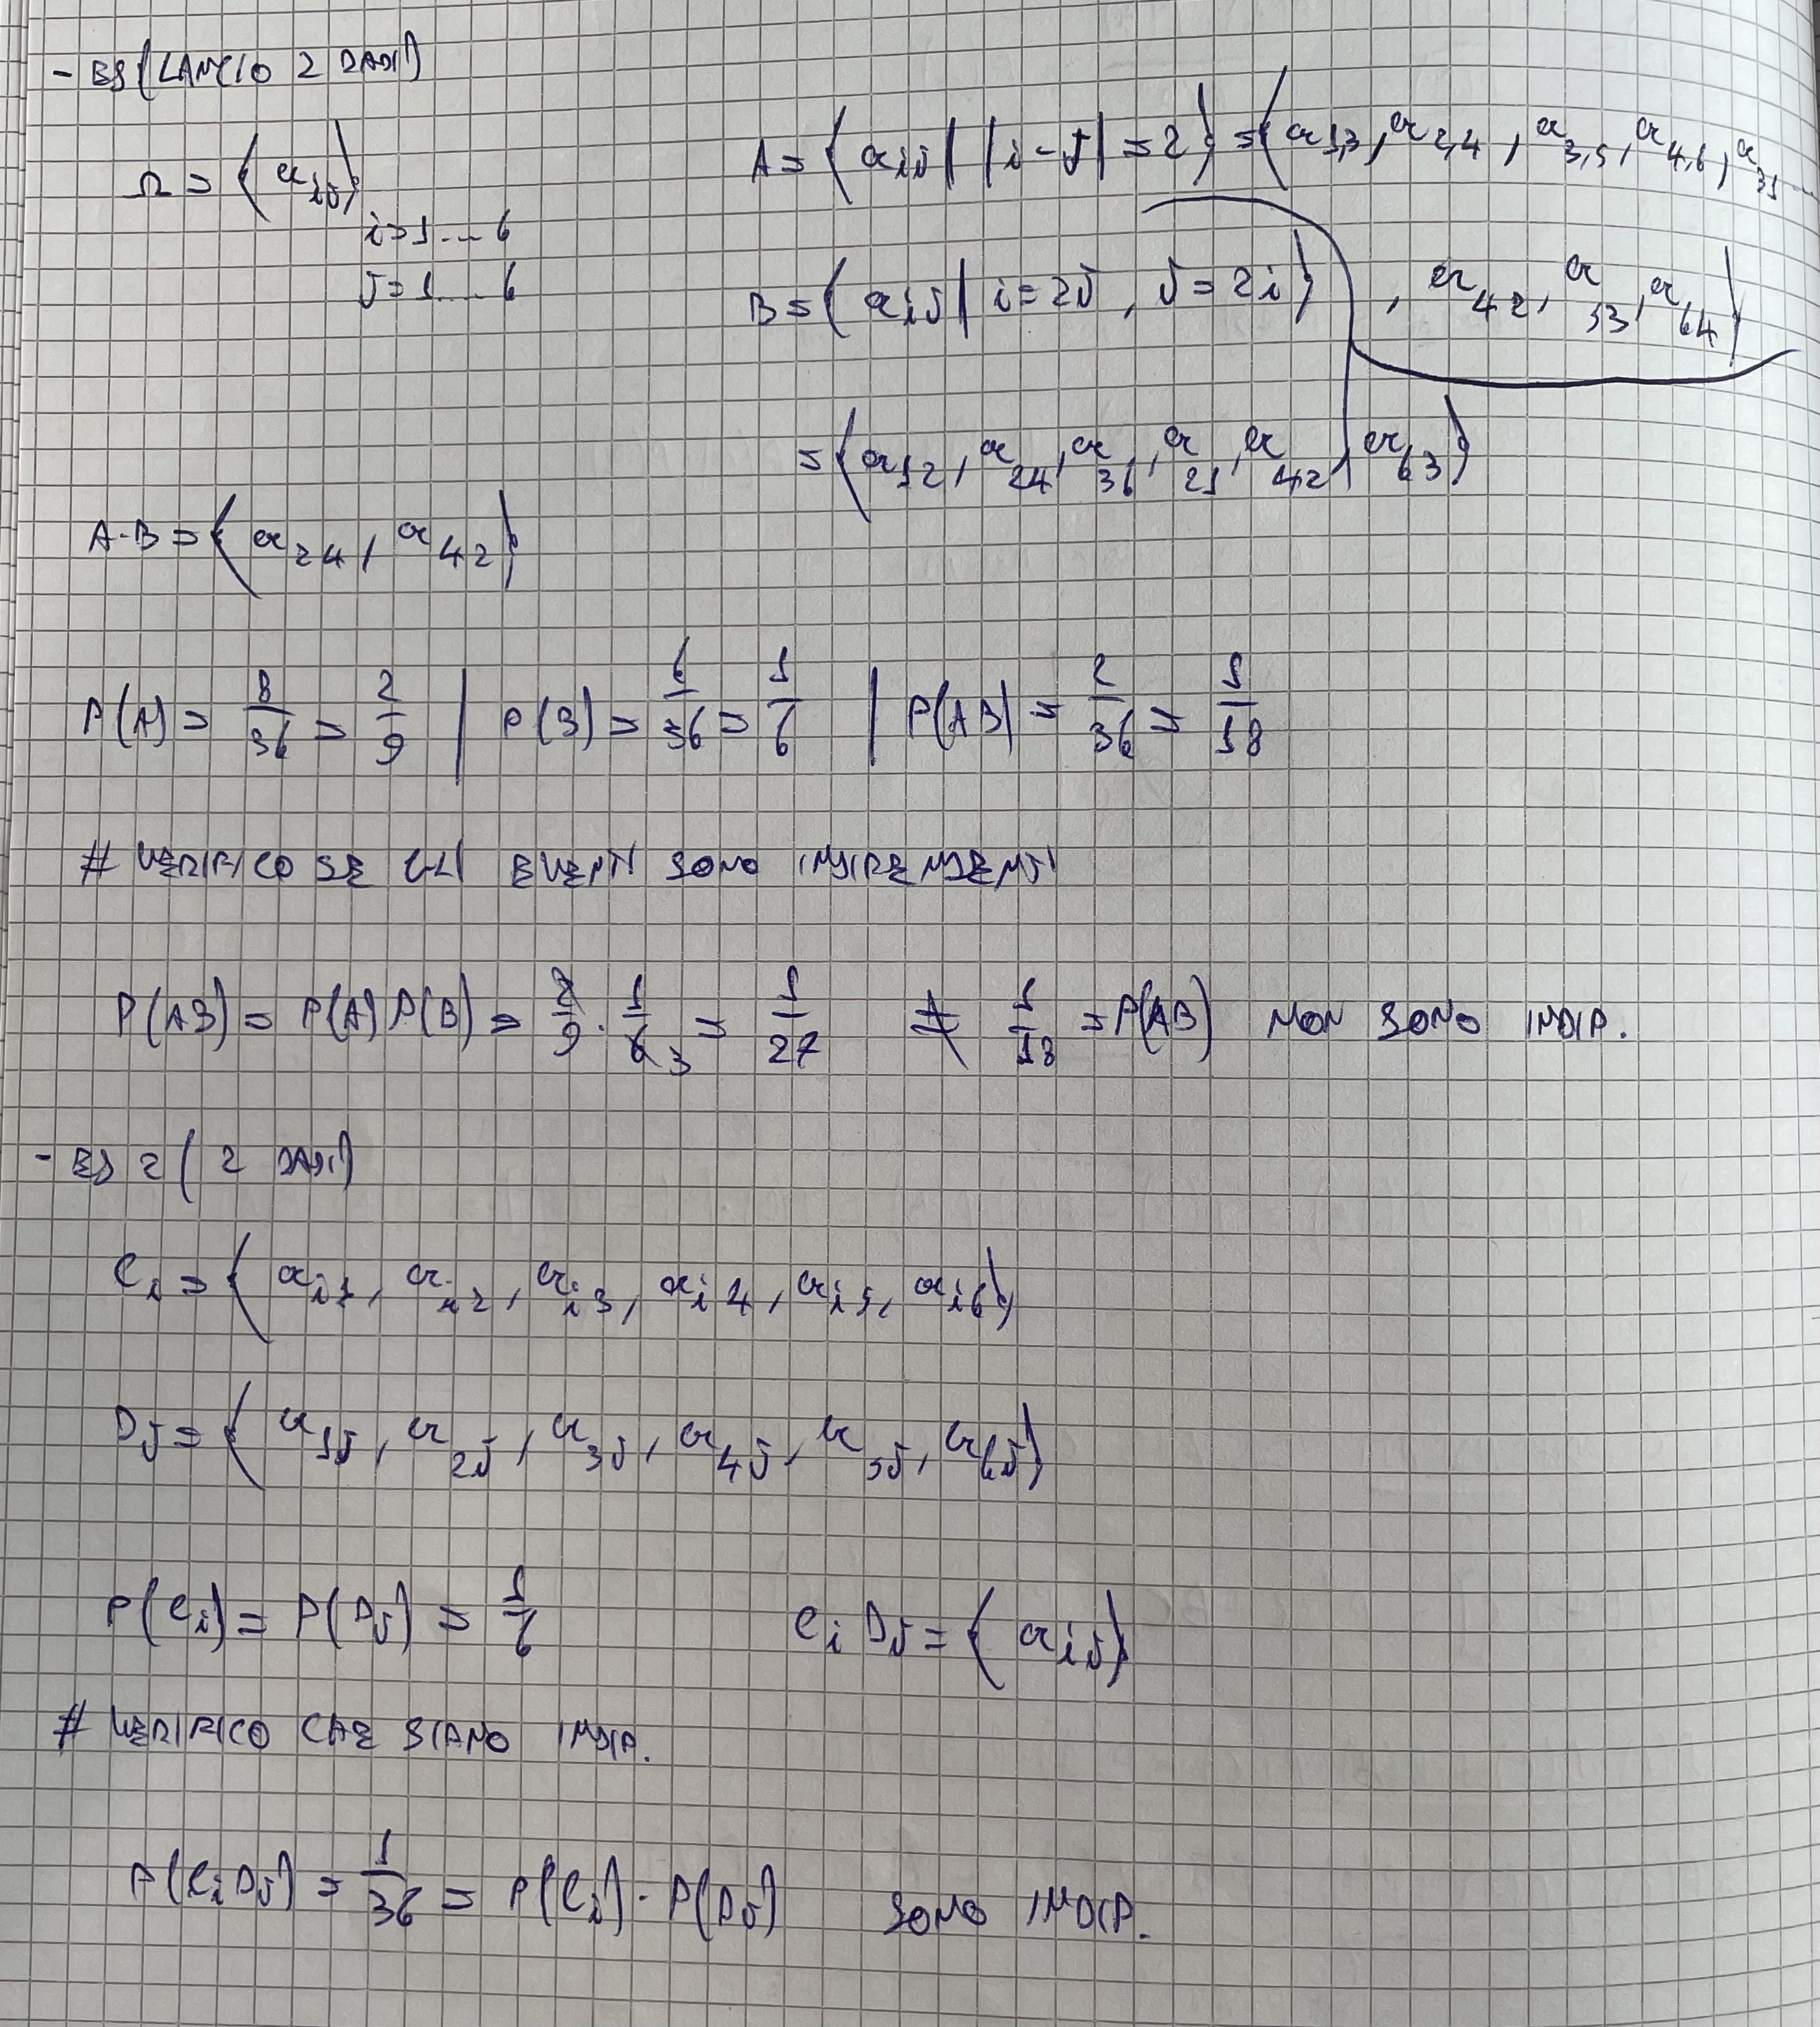 - ES (LANCIO 2 DADI)
Ω = { a_ij }
i=1...6
j=1...6
A = { a_ij | |i-j| = 2 } = { a_1,3 , a_2,4 , a_3,5 , a_4,6 , a_31
, a_42 , a_53 , a_64 }
B = { a_ij | i=2j , j=2i }
= { a_12 , a_24 , a_36 , a_21 , a_42 , a_63 }
A·B = { a_24 , a_42 }
P(A) = 8/36 = 2/9 | P(B) = 6/36 = 1/6 | P(AB) = 2/36 = 1/18
# VERIFICO SE GLI EVENTI SONO INDIPENDENTI
P(AB) = P(A) P(B) = 2/9 · 1/6 3 = 1/27 ≠ 1/18 = P(AB) NON SONO INDIP.
- ES 2 ( 2 DADI)
C_i = { a_i1 , a_i2 , a_i3 , a_i4 , a_i5 , a_i6 }
D_j = { a_1j , a_2j , a_3j , a_4j , a_5j , a_6j }
P(C_i) = P(D_j) = 1/6 C_i D_j = { a_ij }
# VERIFICO CHE SIANO INDIP.
P(C_i D_j) = 1/36 = P(C_i) · P(D_j) SONO INDIP.